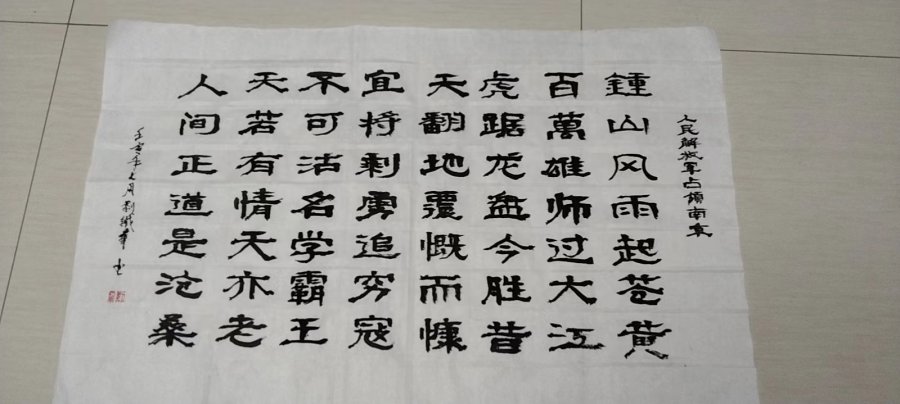 人民解放军占領南京
鍾山风雨起苍黄
百萬雄师过大江
虎踞龙盘今胜昔
天翻地覆慨而慷
宜将剩勇追穷寇
不可沽名学霸王
天若有情天亦老
人间正道是沧桑
壬寅年 月 书